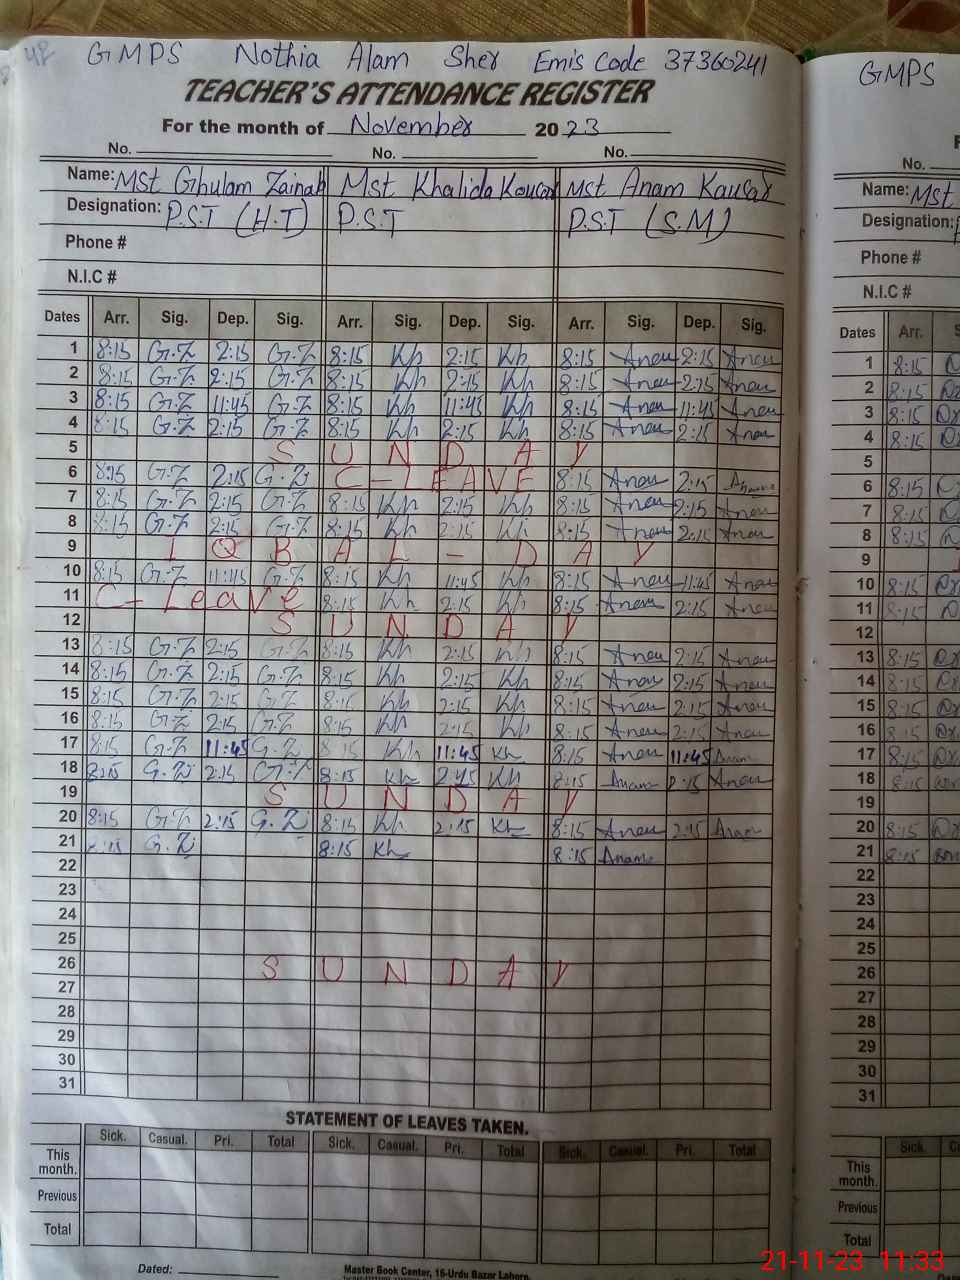 GMPS Nothia Alam Sher Emis Code 37360241 GMPS
TEACHER'S ATTENDANCE REGISTER
For the month of November 2023
No. No. No. No.
Name: Mst Ghulam Zainab Mst Khalida Kousar Mst Anam Kausar Name: Mst
Designation: P.S.T (H.T) P.S.T P.S.T (S.M) Designation:
Phone # Phone #
N.I.C # N.I.C #
Dates Arr. Sig. Dep. Sig. Arr. Sig. Dep. Sig. Arr. Sig. Dep. Sig. Dates Arr.
1 8:15 G.Z 2:15 G.Z 8:15 Kh 2:15 Kh 8:15 Anam 2:15 Anam 1 8:15
2 8:15 G.Z 2:15 G.Z 8:15 Kh 2:15 Kh 8:15 Anam 2:15 Anam 2 8:15
3 8:15 G.Z 11:45 G.Z 8:15 Kh 11:45 Kh 8:15 Anam 11:45 Anam 3 8:15
4 8:15 G.Z 2:15 G.Z 8:15 Kh 2:15 Kh 8:15 Anam 2:15 Anam 4 8:15
5 S U N D A Y 5
6 8:15 G.Z 2:15 G.Z C-LEAVE 8:15 Anam 2:15 Anam 6 8:15
7 8:15 G.Z 2:15 G.Z 8:15 Kh 2:15 Kh 8:15 Anam 2:15 Anam 7 8:15
8 8:15 G.Z 2:15 G.Z 8:15 Kh 2:15 Kh 8:15 Anam 2:15 Anam 8 8:15
9 I Q B A L - D A Y 9
10 8:15 G.Z 11:45 G.Z 8:15 Kh 11:45 Kh 8:15 Anam 11:45 Anam 10 8:15
11 C-Leave 8:15 Kh 2:15 Kh 8:15 Anam 2:15 Anam 11 8:15
12 S U N D A Y 12
13 8:15 G.Z 2:15 G.Z 8:15 Kh 2:15 Kh 8:15 Anam 2:15 Anam 13 8:15
14 8:15 G.Z 2:15 G.Z 8:15 Kh 2:15 Kh 8:15 Anam 2:15 Anam 14 8:15
15 8:15 G.Z 2:15 G.Z 8:15 Kh 2:15 Kh 8:15 Anam 2:15 Anam 15 8:15
16 8:15 G.Z 2:15 G.Z 8:15 Kh 2:15 Kh 8:15 Anam 2:15 Anam 16 8:15
17 8:15 G.Z 11:45 G.Z 8:15 Kh 11:45 Kh 8:15 Anam 11:45 Anam 17 8:15
18 8:15 G.Z 2:15 G.Z 8:15 Kh 2:45 Kh 8:15 Anam 2:15 Anam 18 8:15
19 S U N D A Y 19
20 8:15 G.Z 2:15 G.Z 8:15 Kh 2:15 Kh 8:15 Anam 2:15 Anam 20 8:15
21 8:15 G.Z 8:15 Kh 8:15 Anam 21 8:15
22 22
23 23
24 24
25 25
26 S U N D A Y 26
27 27
28 28
29 29
30 30
31 31
STATEMENT OF LEAVES TAKEN.
Sick. Casual. Pri. Total Sick. Casual. Pri. Total Sick. Casual. Pri. Total Sick.
This month. This month.
Previous Previous
Total Total
Dated: Master Book Center, 16-Urdu Bazar Lahore.
21-11-23 11:33